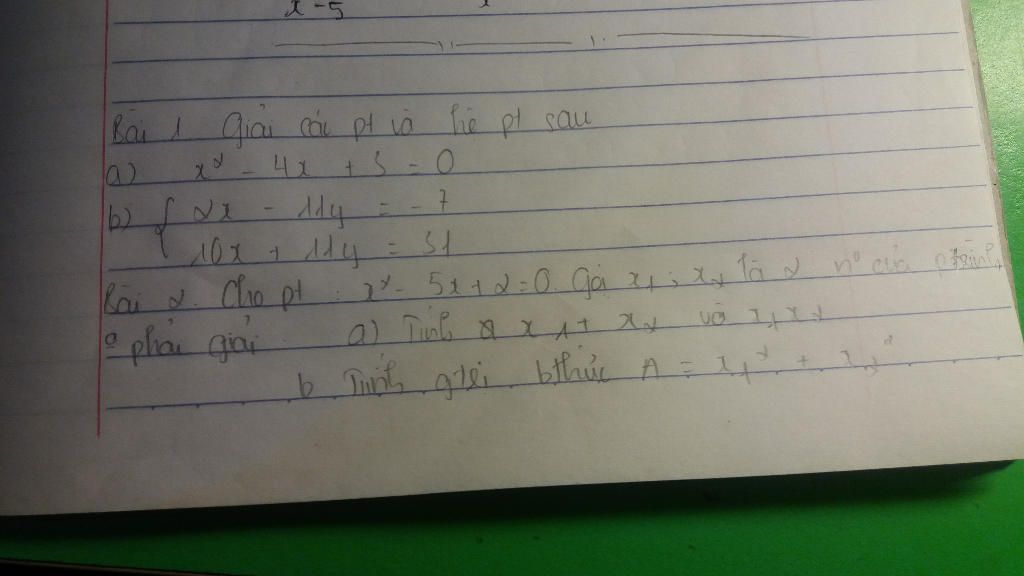 x - 5
Bài 1 Giải các pt và hệ pt sau
a) x² - 4x + 3 = 0
b) { 2x - 11y = - 7
10x + 11y = 31
Bài 2. Cho pt : x² - 5x + 2 = 0. Gọi x₁ ; x₂ là 2 nº của ptrình,
º phải giải a) Tính x₁ + x₂ và x₁x₂
b Tính gtrị bthức A = x₁² + x₂²